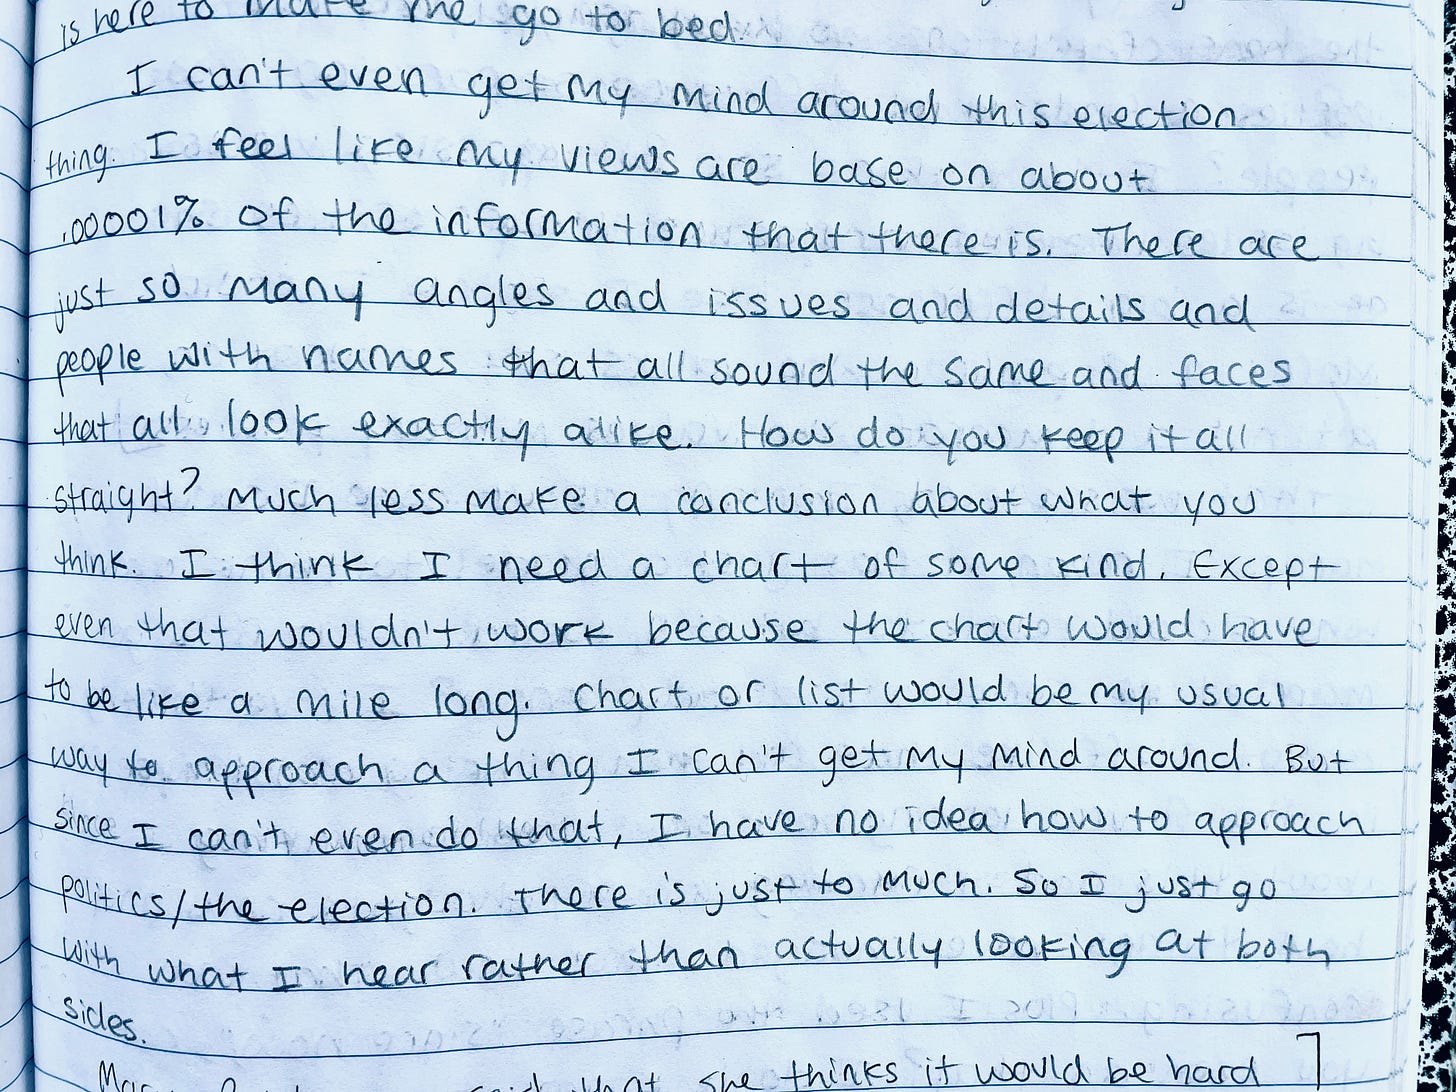 is here to make me go to bed.
I can't even get my mind around this election
thing. I feel like my views are base on about
.00001% of the information that there is. There are
just so many angles and issues and details and
people with names that all sound the same and faces
that all look exactly alike. How do you keep it all
straight? Much less make a conclusion about what you
think. I think I need a chart of some kind. Except
even that wouldn't work because the chart would have
to be like a mile long. Chart or list would be my usual
way to approach a thing I can't get my mind around. But
since I can't even do that, I have no idea how to approach
politics/the election. There is just to much. So I just go
with what I hear rather than actually looking at both
sides.
said that she thinks it would be hard